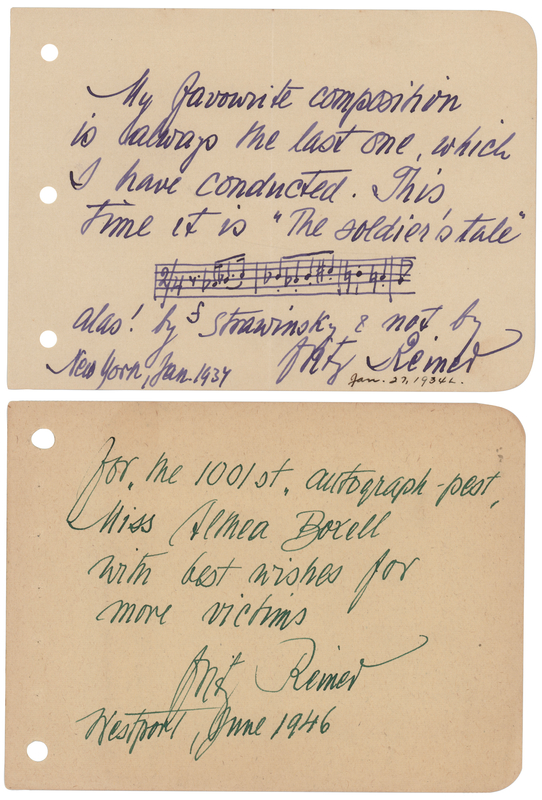 My favourite composition
is always the last one, which
I have conducted. This
time it is "The soldier's tale"
2/4
alas! by Strawinsky & not by
New York, Jan. 1937 Fritz Reiner
Jan. 27, 1934
For "the 1001st" autograph-pest,
Miss Althea Boxell
with best wishes for
more victims
Fritz Reiner
Westport, June 1946